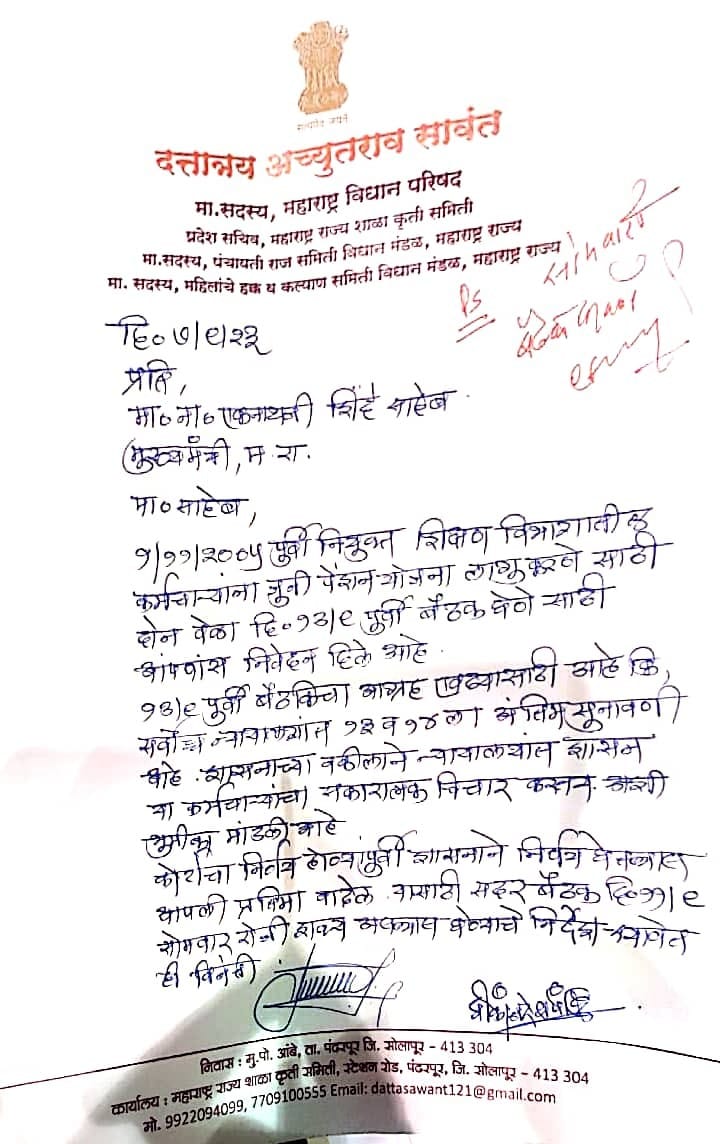 सत्यमेव जयते
दत्तात्रय अच्युतराव सावंत
मा.सदस्य, महाराष्ट्र विधान परिषद
प्रदेश सचिव, महाराष्ट्र राज्य शाळा कृती समिती
मा.सदस्य, पंचायती राज समिती विधान मंडळ, महाराष्ट्र राज्य
मा. सदस्य, महिलांचे हक्क व कल्याण समिती विधान मंडळ, महाराष्ट्र राज्य
PS
बैठक
दि० ७/९/२३
प्रति,
मा० ना० एकनाथजी शिंदे साहेब
मुख्यमंत्री, म. रा.
मा० साहेब,
१/११/२००५ पुर्वी नियुक्त शिक्षण विभागातील
कर्मचाऱ्यांना जुनी पेंशन योजना लागू करणे साठी
दोन वेळा दि. १३/९ पुर्वी बैठक घेणे साठी
आपणांस निवेदन दिले आहे.
१३/९ पुर्वी बैठकिचा आग्रह एवढ्यासाठी आहे कि,
सर्वोच्च न्यायालयात १३ व १४ ला अंतिम सुनावणी
आहे. शासनाच्या वकीलाने न्यायालयांत शासन
या कर्मचाऱ्यांचा सकारात्मक विचार करतय अशी
भुमीका मांडली आहे
कोर्टाचा निर्णय होण्यापुर्वी शासनाने निर्णय घेतल्यास
आपली प्रतिमा वाढेल. यासाठी सदर बैठक दि. ११/९
सोमवार रोजी घेण्याचे निर्देश द्यावेत
ही विनंती
निवास : मु.पो. आंबे, ता. पंढरपूर जि. सोलापूर - 413 304
कार्यालय : महाराष्ट्र राज्य शाळा कृती समिती, स्टेशन रोड, पंढरपूर, जि. सोलापूर - 413 304
मो. 9922094099, 7709100555 Email: dattasawant121@gmail.com